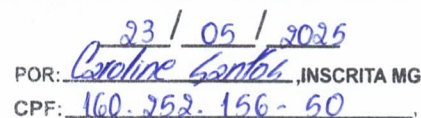 23 / 05 / 2025
POR: Caroline Santos ,INSCRITA MG
CPF: 160.252.156-50 ,